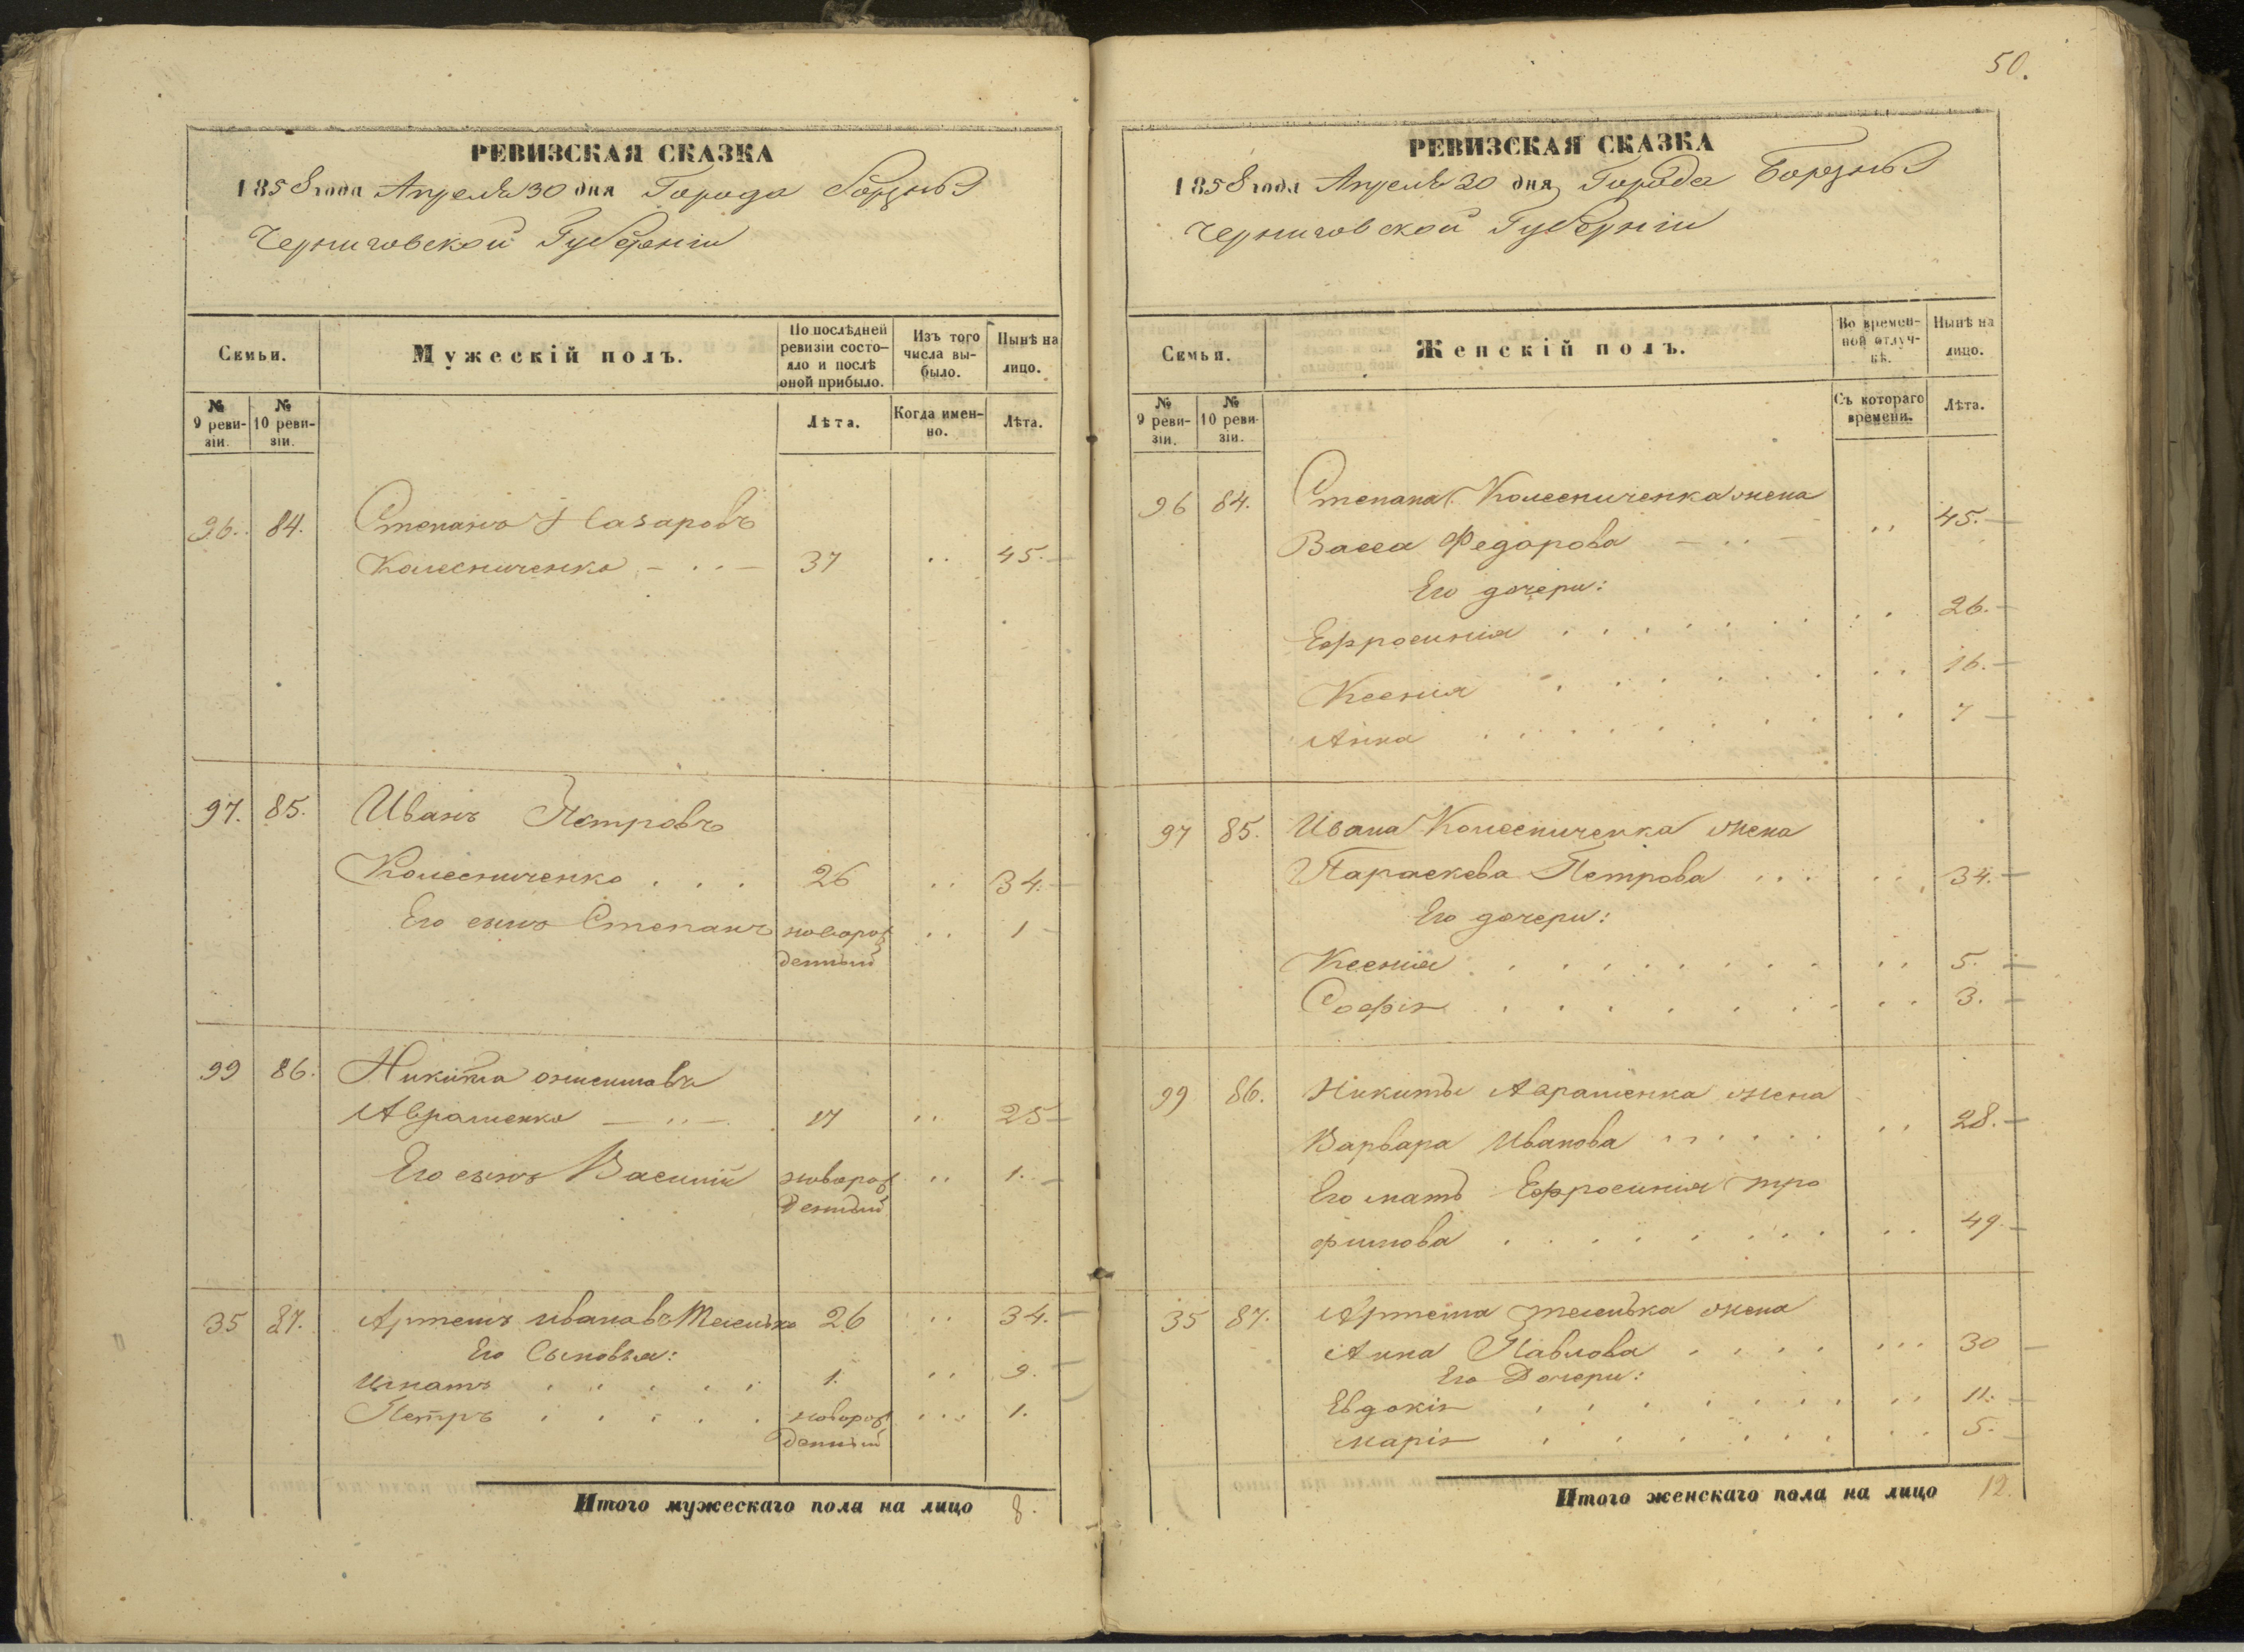 РЕВИЗСКАЯ СКАЗКА
1858 года Апреля 30 дня Города Борзны
Черниговской Губерніи
Семьи.
Мужескій полъ.
По послѣдней ревизіи состояло и послѣ оной прибыло.
Изъ того числа выбыло.
Нынѣ на лицо.
№ 9 ревизіи.
№ 10 ревизіи.
Лѣта.
Когда именно.
Лѣта.
96. 84. Степанъ Назаровъ
Колесниченко – . . – 37 . . 45. –
97. 85. Иванъ Петровъ
Колесниченко . . . 26 . . 34. –
Его сынъ Степанъ новорож . . 1 –
денный
99 86. Никита
Аврашенко – . . – . 17 . . 25 –
Его сынъ Василій новорож . . 1. –
денный
35 87. Артемъ Ивановъ 26 . . 34. –
Его Сыновья:
Игнатъ . . . . . 1. . . 9. –
Петръ . . . . . новорож . . . 1.
денный
Итого мужескаго пола на лицо 8.
50.
РЕВИЗСКАЯ СКАЗКА
1858 года Апреля 30 дня Города Борзны
Черниговской Губерніи
Семьи.
Женскій полъ.
Во временной отлучкѣ.
Нынѣ на лицо.
№ 9 ревизіи.
№ 10 ревизіи.
Съ котораго времени.
Лѣта.
96 84. Степана Колесниченка жена
Васса Федорова – . . – . . 45. –
Его дочери:
Ефросинія . . . . . . . . . 26. –
Ксенія . . . . . . . . 16. –
Анна . . . . . . . . . 7 –
97 85. Ивана Колесниченка жена
Параскева Петрова . . . . . 34. –
Его дочери:
Ксенія . . . . . . . . . . 5. –
Софія . . . . . . . . . 3. –
99 86. Никиты Аврашенка жена
Варвара Иванова . . . . . . . . 28. –
Его мать Ефросинія Тро
фимова . . . . . . . . . . 49. –
35 87. Артема жена
Анна Павлова . . . . . . . 30 –
Его Дочери:
Евдокія . . . . . . . . . 11. –
Марія . . . . . . . . . 5. –
Итого женскаго пола на лицо 12.